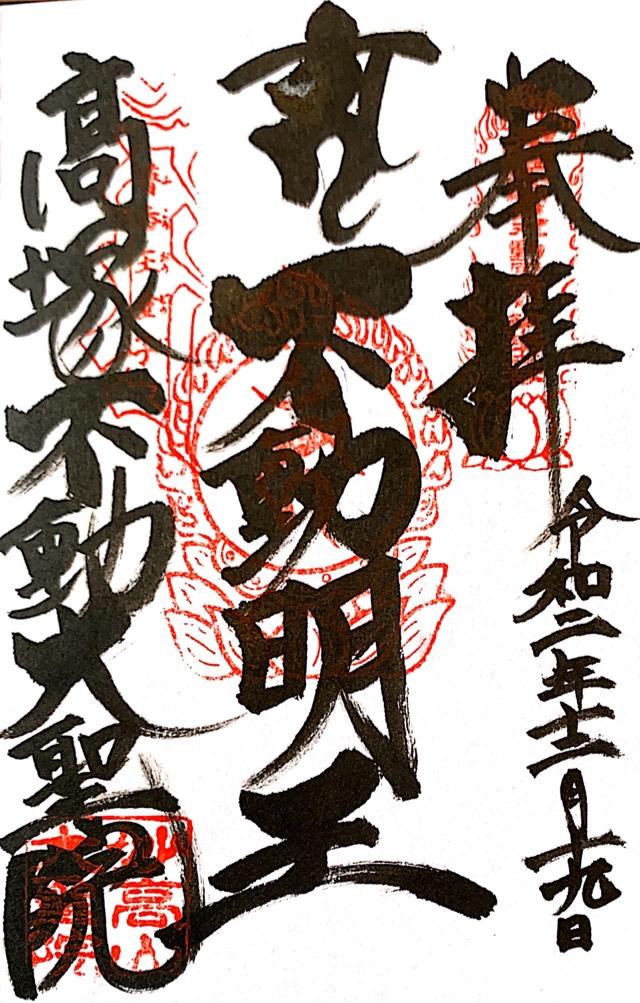 奉拝
令和二年十二月十九日
不動明王
髙塚不動大聖院